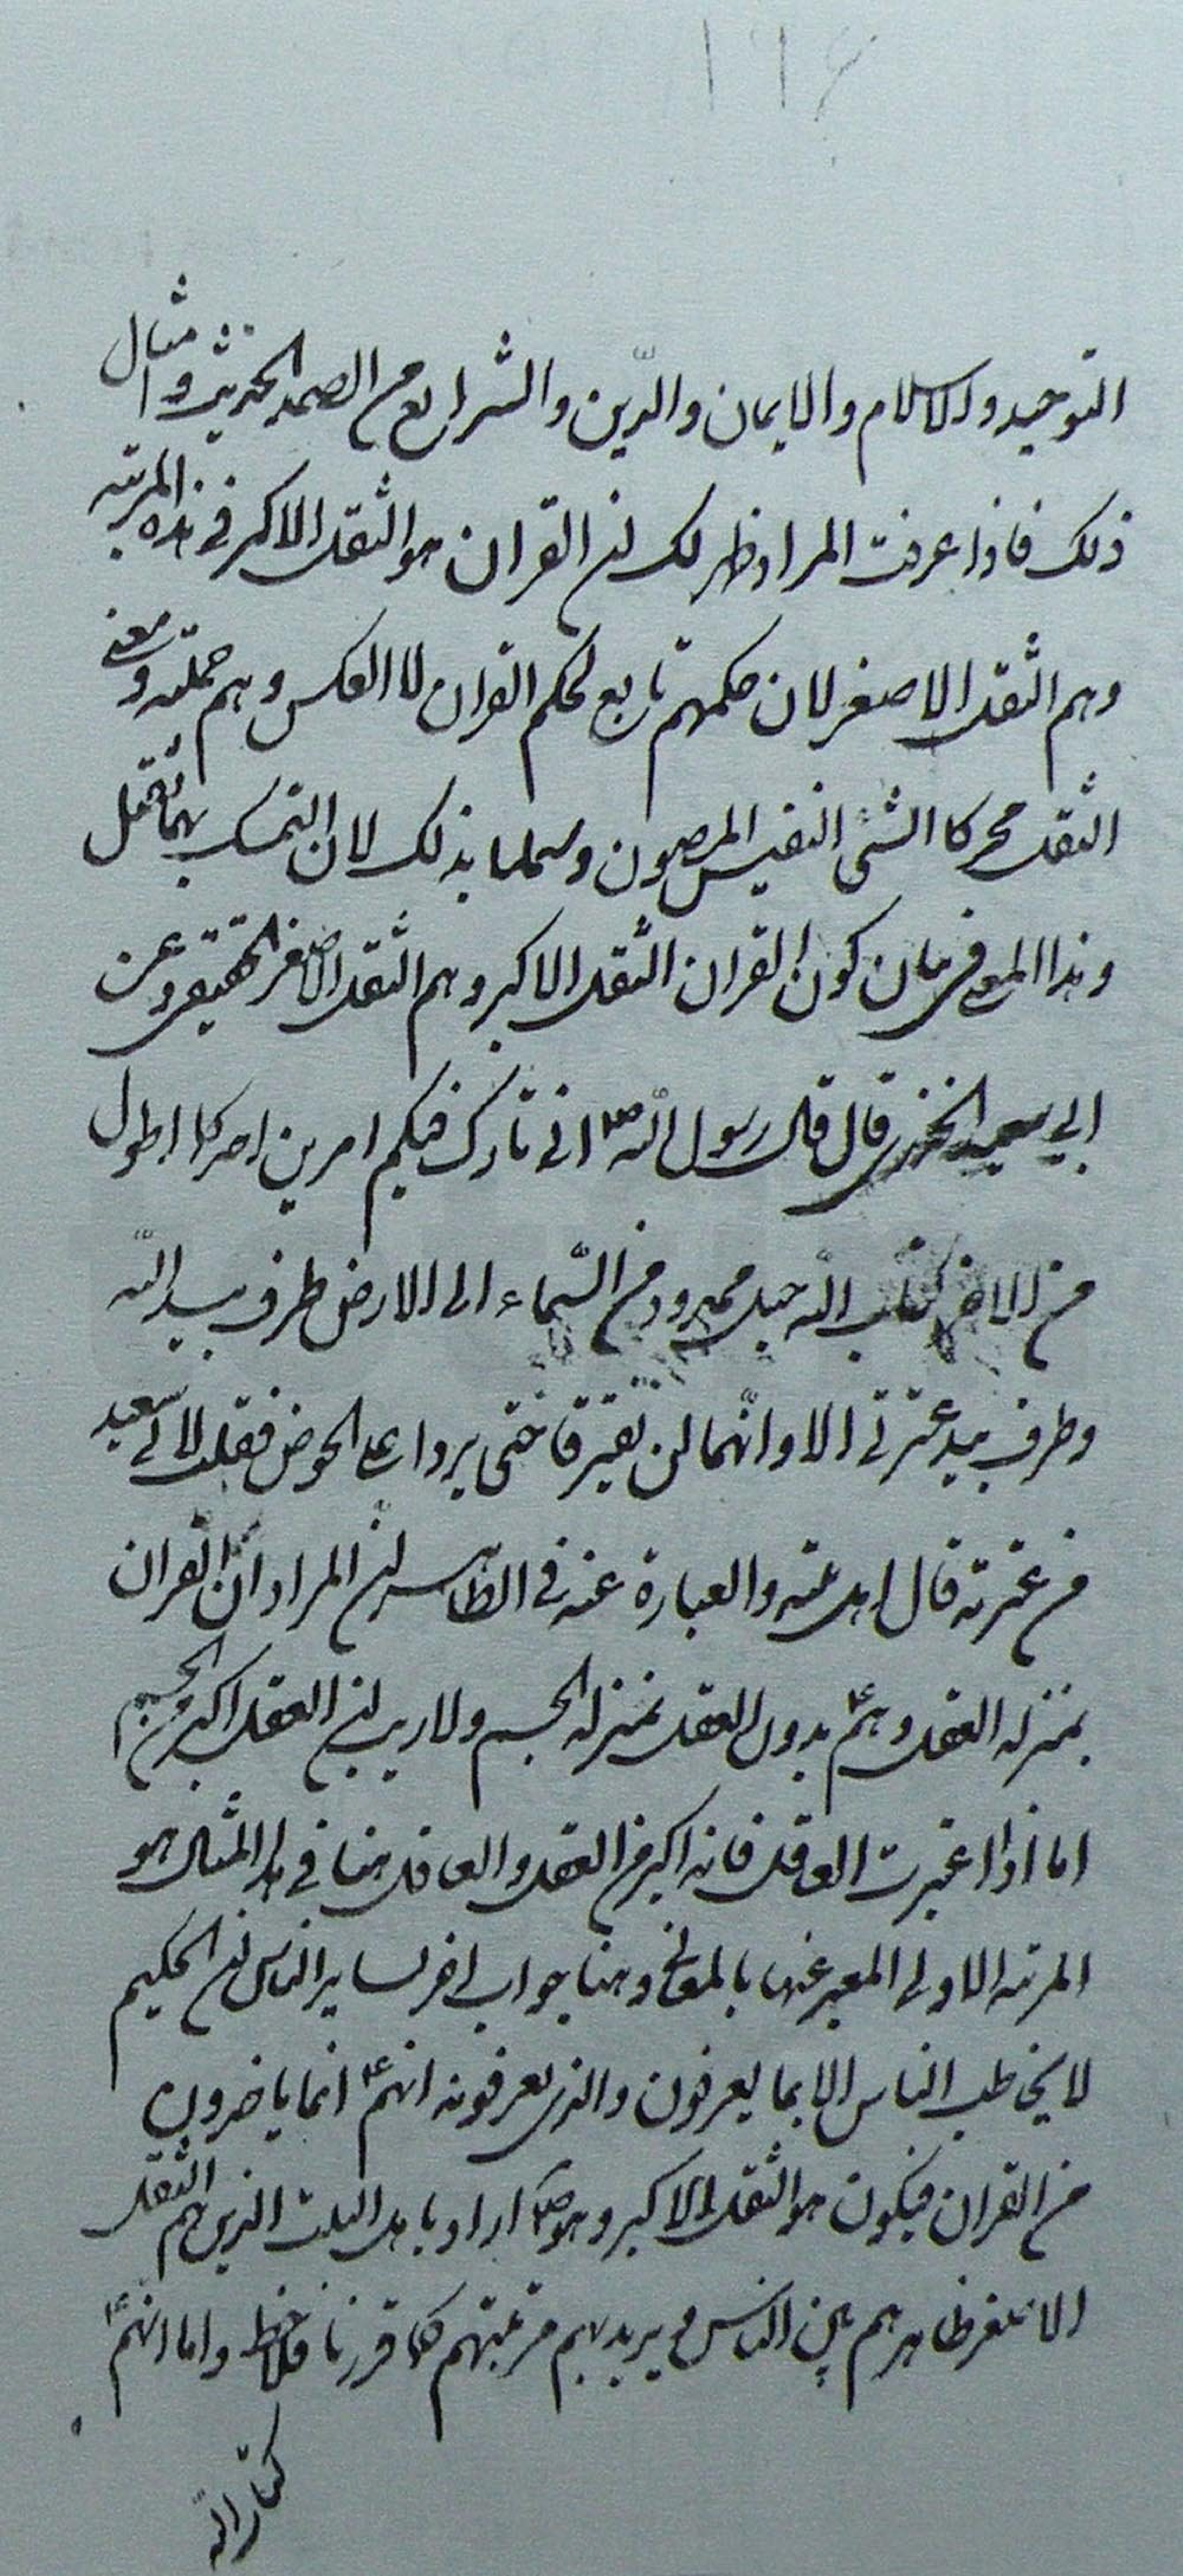 ١٩٤
التوحيد والاسلام والايمان والدّين والشرايع من الصمد الحديث وامثال
ذلك فاذا عرفت المراد ظهر لك ان القران هو الثقل الاكبر فى هذه المرتبه
وهم الثقل الاصغر لان حكمهم تابع لحكم القران لا العكس وهم حملته ومعنى
الثقل محركا الشئ النفيس المصون وسميا بذلك لان التمسك بهما ثقيل
وهذا المعنى فى بيان كون القران الثقل الاكبر وهم الثقل الاصغر الحقيقى وعن
ابي سعيد الخدرى قال قال رسول الله ص انى تارك فيكم امرين احدهما اطول
من الاخر كتاب الله حبل ممدود من السّماء الى الارض طرف بيد الله
وطرف بيد عترتى الا وانّهما لن يفترقا حتى يردا على الحوض فقلت لابى سعيد
من عترته قال اهل بيته والعبارة عنه فى الظاهر ان المراد انّ القران
بمنزله العقل وهم ع بدون العقل بمنزله الجسم ولا ريب ان العقل اكبر من الجسم
اما اذا اعتبرت العاقل فانه اكبر من العقل والعاقل هنا فى هذا المثال هو
المرتبه الاولى المعبر عنها بالمعانى وهنا جواب اخر لساير الناس ان الحكيم
لا يخاطب الناس الا بما يعرفون والذى يعرفونه انهم ع انما ياخذون
من القران فيكون هو الثقل الاكبر وهو ص اراد باهل البيت الذين هم الثقل
الاصغر ظاهرهم بين الناس لم يريد بهم مرتبتهم كما قررنا فلاحظ واما انهم ع
كتاب الله